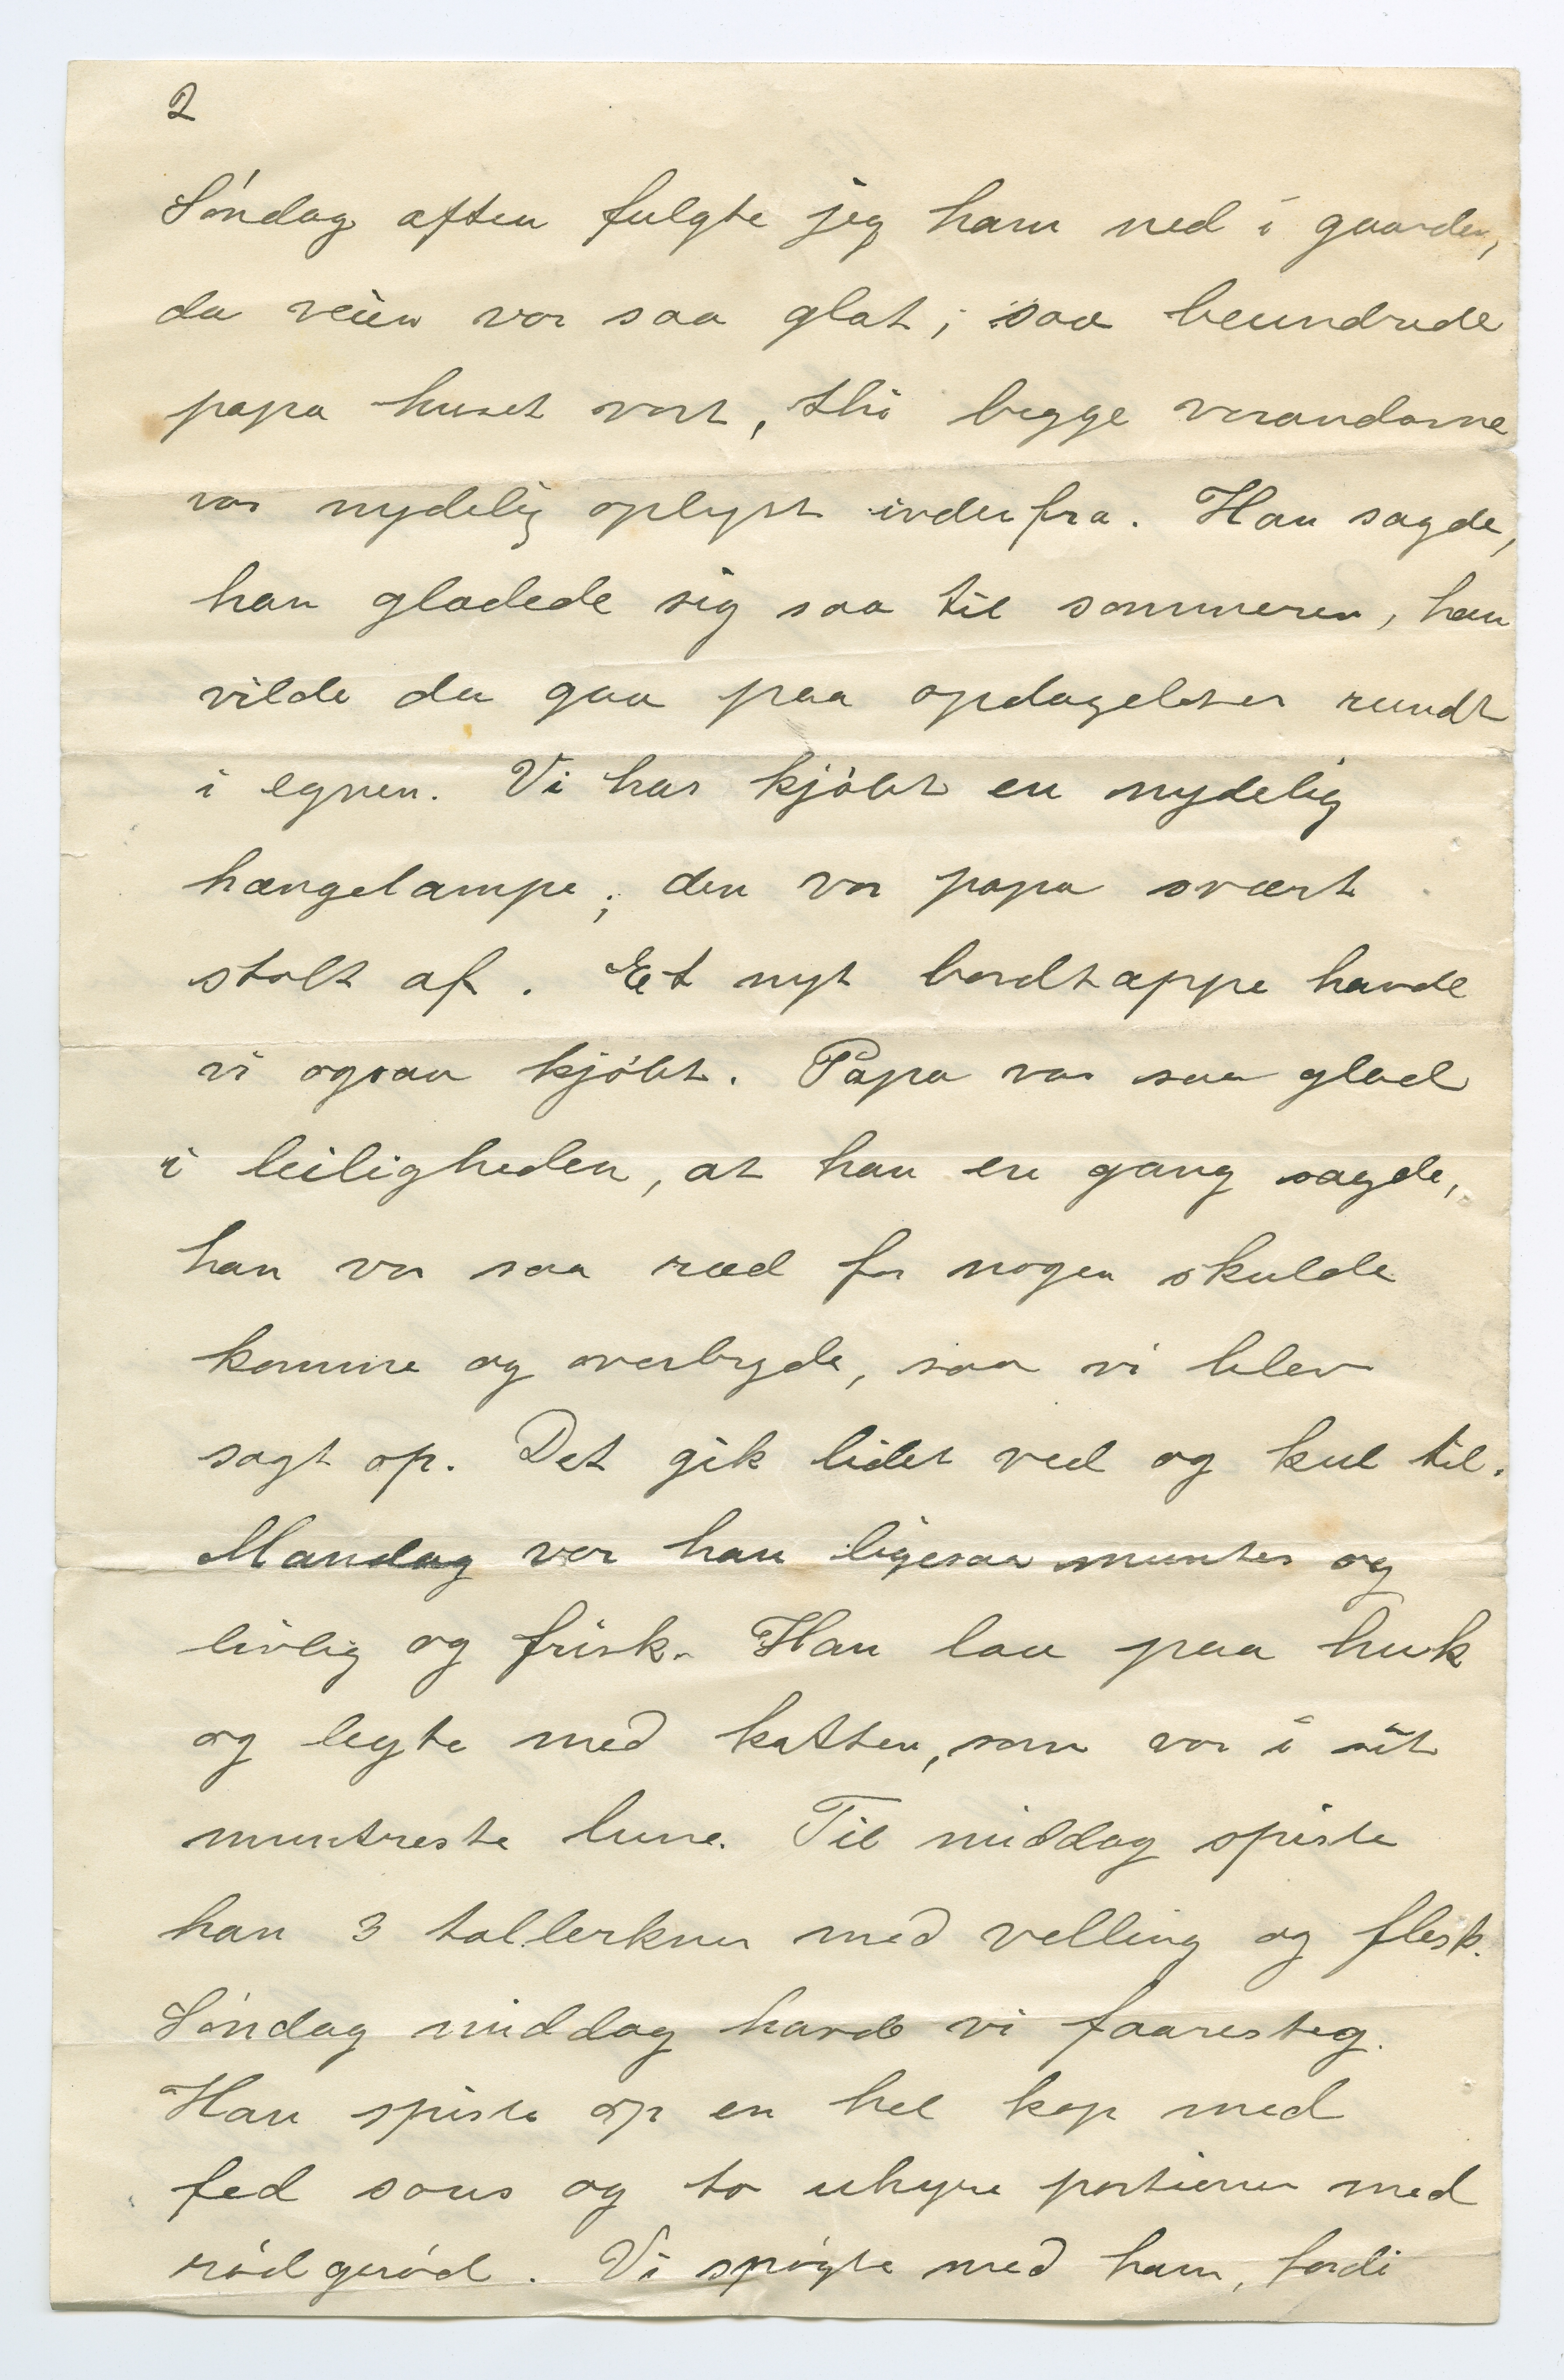 2
Söndag aften fulgte jeg ham ned i gaarden,
da veien var saa glat; saa beundrede
papa huset vort, thi begge verandaerne
var nydelig oplyst indenfra. Han sagde,
han glædede sig saa til sommeren, han
vilde da gaa paa opdagelser rundt
i egnen. Vi har kjöbt en nydelig
hængelampe; den var papa svært
stolt af. Et nyt bordtæppe havde
vi ogsaa kjöbt. Papa var saa glad
i leiligheden, at han en gang sagde,
han var saa ræd for nogen skulde
komme og overbyde, saa vi blev
sagt op. Det gik lidet ved og kul til.
Mandag var han ligesaa munter og
livlig og frisk. Han laa paa huk
og legte med katten, som var i sit
muntreste lune. Til middag spiste
han 3 tallerkner med velling og flesk.
Söndag middag havde vi faaresteg.
Han spiste op en hel kop med
fed saus og to uhyre portioner med
rödgröd. Vi spögte med ham, fordi